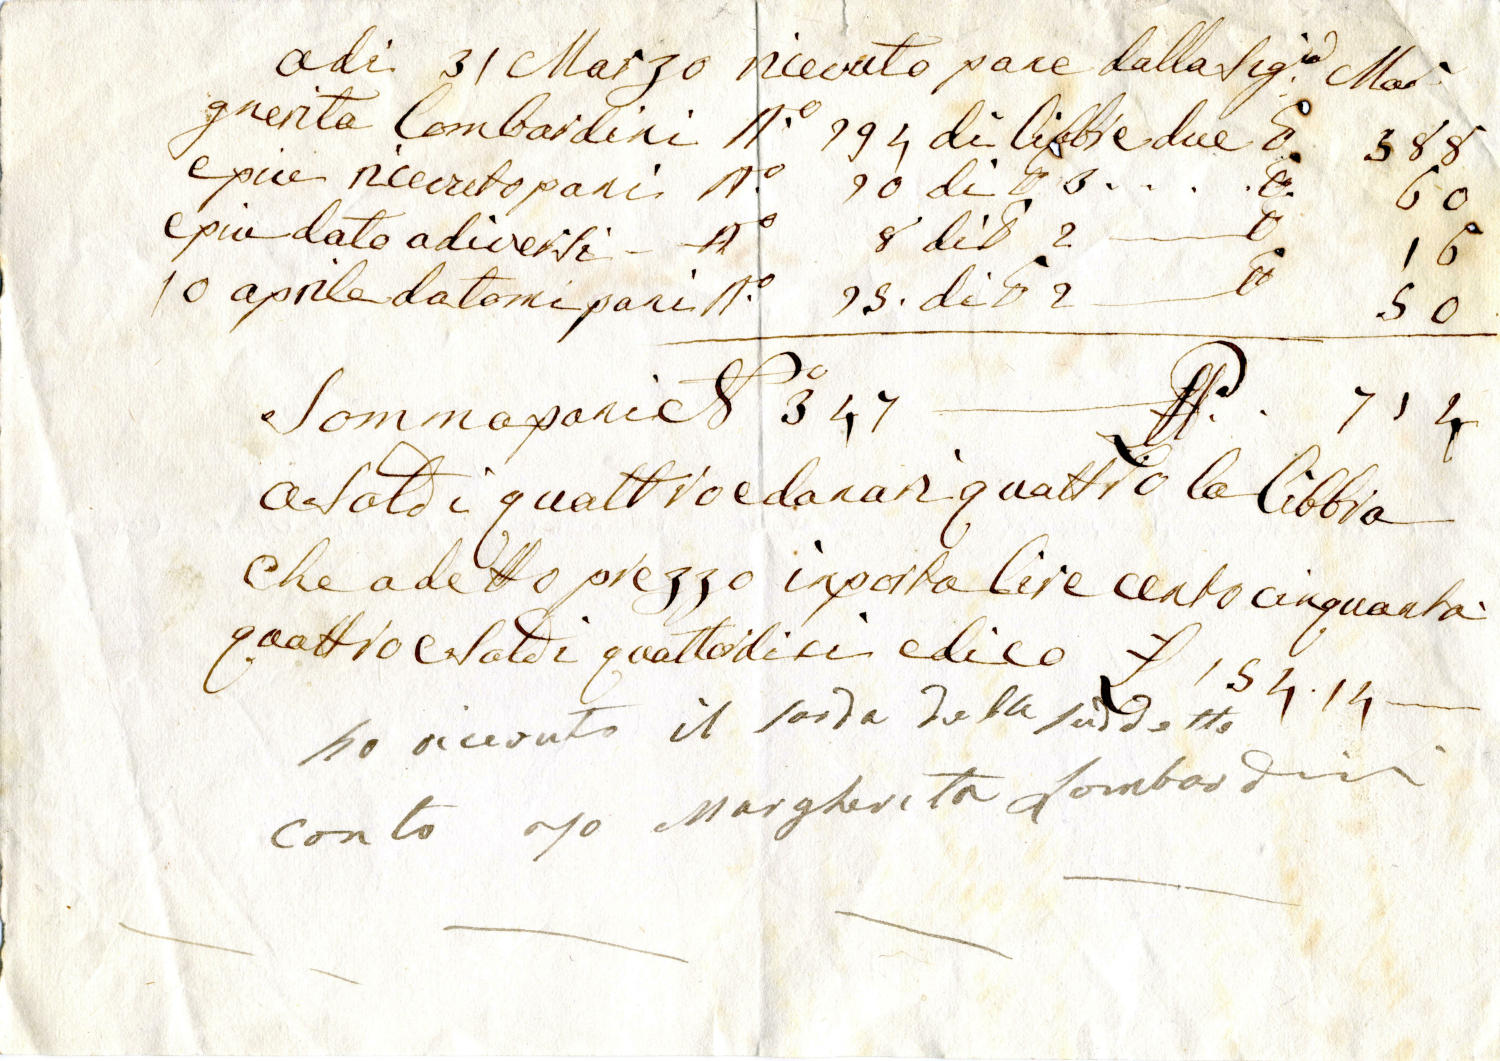 adi 31 Marzo ricevuto pane dalla Sig.ra Mar
gnerita Lombardini N.o 294 di libbre due ℔ 588
e piu ricevuto pani N.o 20 di ℔ 3 . . . . ℔ 60
e piu dato a diversi - N.o 8 di ℔ 2 — ℔ 16
10 aprile datomi pani N.o 25. di ℔ 2 — ℔ 50
Somma pani N.o 347 — ℔. . 714
a Soldi quattro e danari quattro la libbra
che a detto prezzo inporta lire cento cinquanta
quattro e Soldi quattordici e dico £ 154.14 —
ho ricevuto il saldo della suddetto
conto io Margherita Lombardini